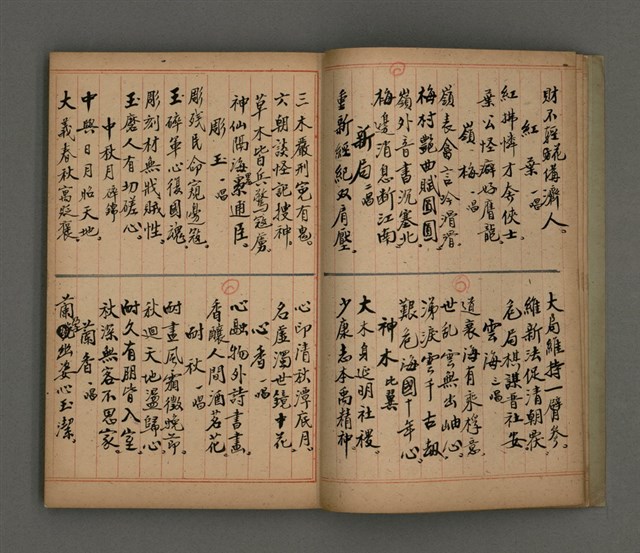 財不輕疏慎濟人。
紅葉 一唱
紅拂憐才夸俠士
葉公怪癖好潛龍
嶺梅 一唱
嶺表會言吟渭渭
梅村艷曲賦圓圓
嶺外音書沉塞北
梅邊消息斷江南。
新局 二唱
重新經紀双肩壓
大局維持一臂參。
維新法促清朝
危局棋謀晉社安
雲海 三唱
道衰海有乘桴意
世亂雲無出岫心。
涕淚雲千古劫
艱危海國十年心。
神木 比翼
大木身延明社稷
少康志本禹精神
三木嚴刑冤有鬼。
六朝談怪記搜神。
草木皆兵驚寇虜
神仙隔海棄逋臣。
彫玉 一唱
彫殘民命窺邊寇。
玉碎軍心復國魂。
彫刻材無戕賊性。
玉磨人有切磋心。
中秋月 碎錦
中興日月昭天地。
大義春秋寓貶褒。
心印清秋潭底月。
名虛濁世鏡中花
心香 一唱
心融物外詩書畫。
香釀人間酒茗花
耐秋 一唱
耐盡風霜徵晚節。
秋迴天地盪歸心。
耐久有朋皆入室
秋深無客不思家。
蘭香 一唱
蘭幽姿心玉潔